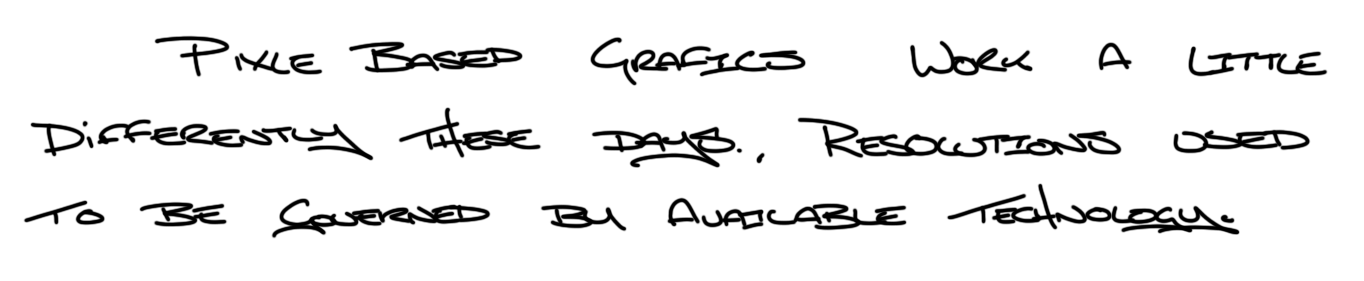 Pixle Based Grafics Work a little
Differently these days.. Resolutions used
to be governed by available technology.